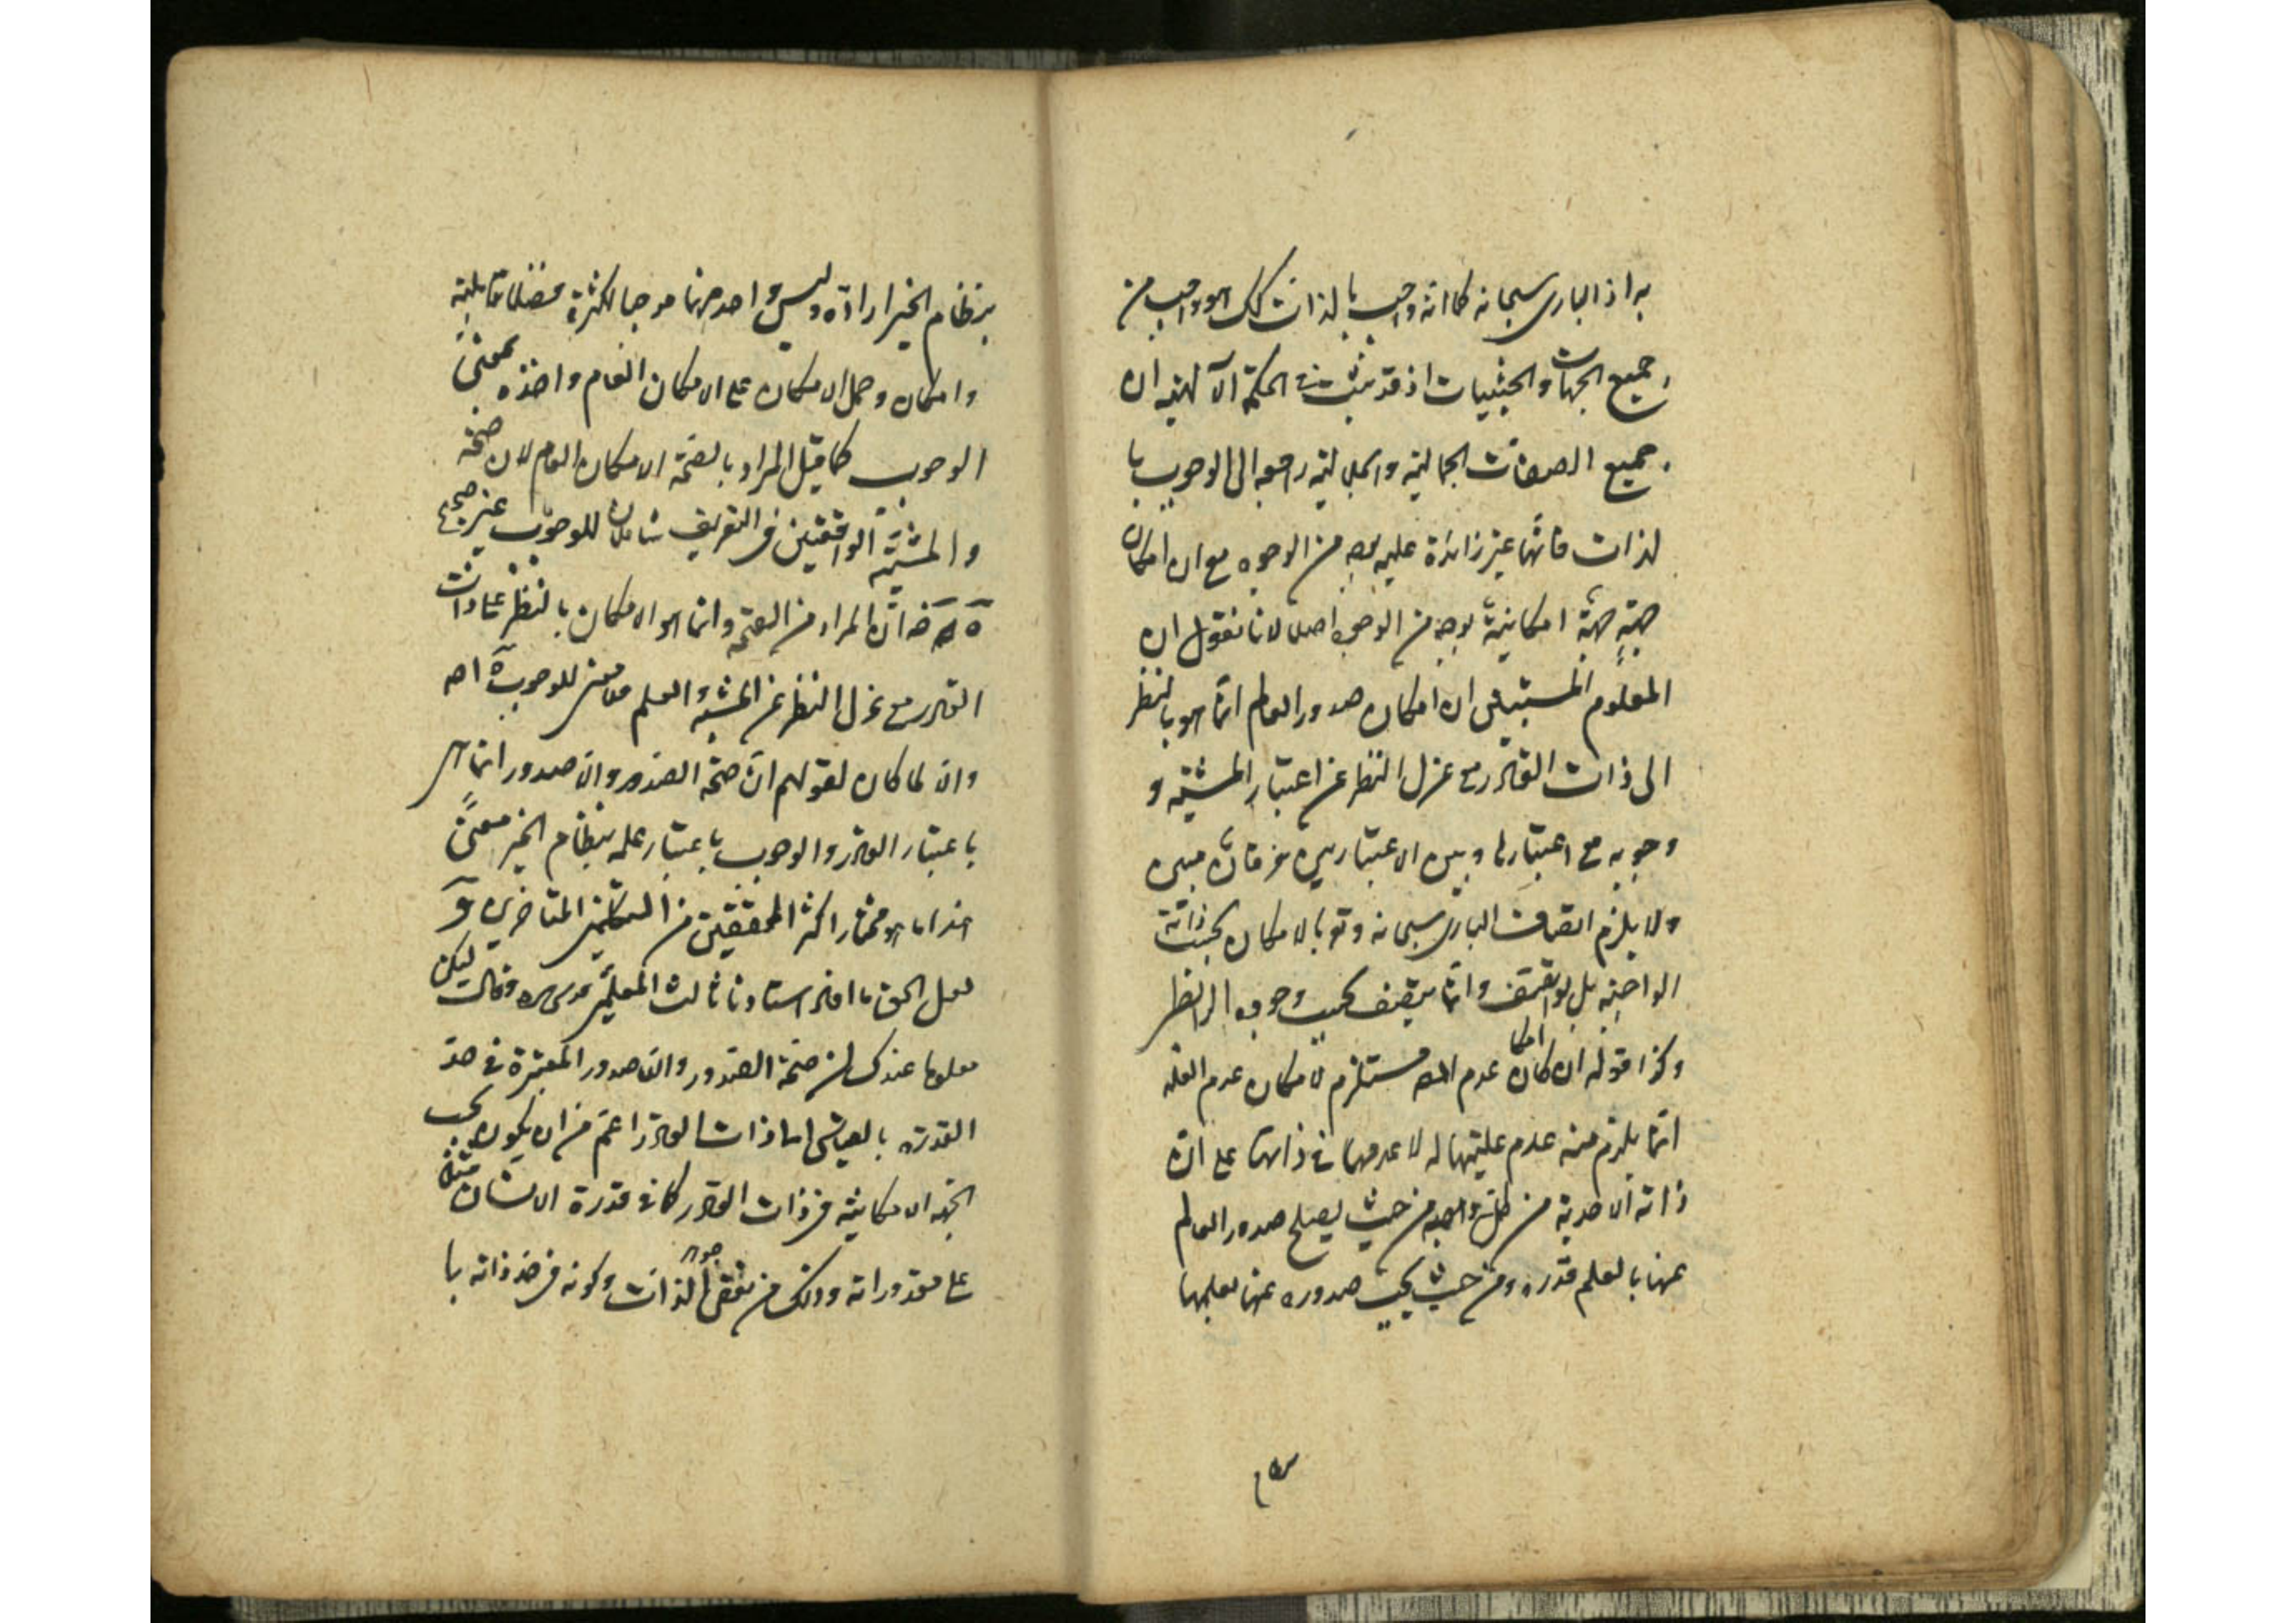 به اذ الباری سبحانه کما انه واجب بالذات کک هو واجب من
جمیع الجهات والحیثیات اذ قد ثبت فی الحکمة الآلهیه ان
جمیع الصفات الجمالیة والجلالیة راجعه الی الوجوب با
لذات فانها غیر زائدة علیه بوجه من الوجوه مع ان امکان
جهة امکانیة بوجه من الوجوه اصلا لانا نقول ان
المعلوم المستبین ان امکان صدور العالم انما هو بالنظر
الی ذات القادر مع عزل النظر عن اعتبار المشیة و
وجوبه مع اعتبارها وبین الاعتبارین فرقان مبین
ولا یلزم اتصاف الباری سبحانه وتع بالامکان بحسب ذاته
الواجبة بل یتصف بحسب وجوب النظر
وکذا قوله ان امکان عدم مستلزم لامکان عدم العلة
انما یلزم منه عدم علیتها له لا عدمها فی ذاتها علی ان
ذاته الاحدیة من کل واجبه من حیث یصلح صدور العالم
عنها بالعلم قدرة ومن حیث یجب صدوره عنها بعلمها
بنظام الخیر ارادة ولیس واحد منهما موجبا لکثرة فضلا قابلیة
وامکان وحمل الامکان علی الامکان العام واخذه بمعنی
الوجوب کما قیل المراد بالصحة الامکان العام لان صحة
والمشیة الواقعتین فی التعریف شاملان للوجوب غیر صحیح
ان المراد من الصحة وانما هو الامکان بالنظر علی ذات
القادر مع عزل النظر عن المشیة والعلم فلا معنی للوجوب اه
وان لما کان لقولهم ان صحة الصدور وان صدور انما هی
باعتبار القدر والوجوب باعتبار علمه بنظام الخیر معنی
هذا ما هو مختار اکثر المحققین من المتکلمین المتاخرین و
لعل الحق ما افاد استادنا ثالث المعلمین قدس سره وقال لیکن
معلوما عندک ان صحة الصدور والصدور المعتبرة فی حد
القدرة بالقیاس الی ذات القادر اعم من ان یکون بحسب
الجهة الامکانیة فی ذات القادر کما فی قدرة الانسان مثلا
علی مقدوراته وذلک من نقص جوهر الذات وکونه فی حد ذاته با